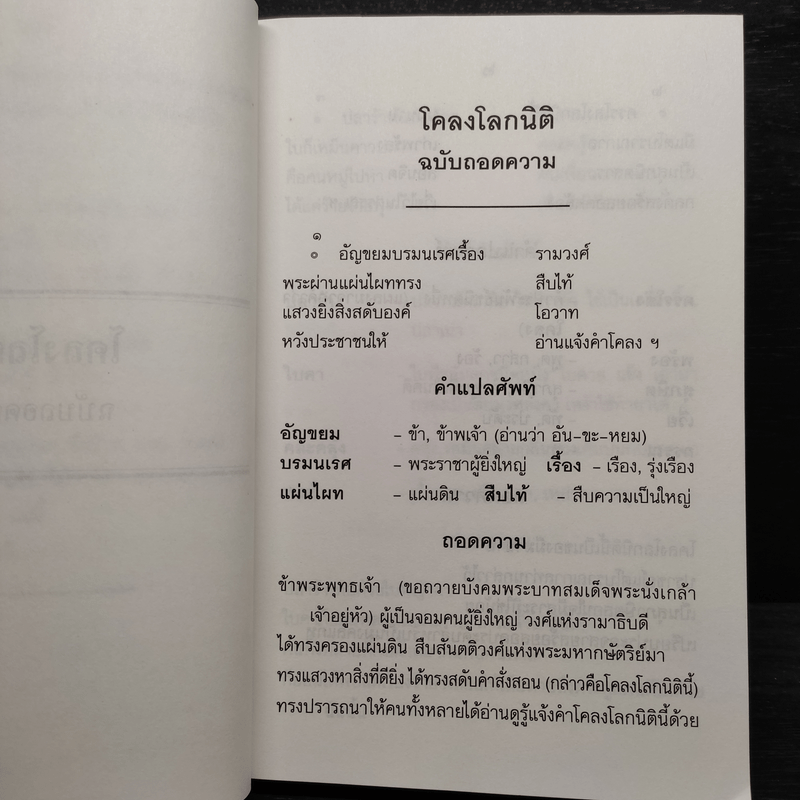 โคลงโลกนิติ
ฉบับถอดความ
๑
๏ อัญขยมบรมนเรศเรื้อง รามวงศ์
พระผ่านแผ่นไผททรง สืบไท้
แสวงยิ่งสิ่งสดับองค์ โอวาท
หวังประชาชนให้ อ่านแจ้งคำโคลง ฯ
คำแปลศัพท์
อัญขยม – ข้า, ข้าพเจ้า (อ่านว่า อัน-ขะ-หยม)
บรมนเรศ – พระราชาผู้ยิ่งใหญ่ เรื้อง – เรือง, รุ่งเรือง
แผ่นไผท – แผ่นดิน สืบไท้ – สืบความเป็นใหญ่
ถอดความ
ข้าพระพุทธเจ้า (ขอถวายบังคมพระบาทสมเด็จพระนั่งเกล้า
เจ้าอยู่หัว) ผู้เป็นจอมคนผู้ยิ่งใหญ่ วงศ์แห่งรามาธิบดี
ได้ทรงครองแผ่นดิน สืบสันตติวงศ์แห่งพระมหากษัตริย์มา
ทรงแสวงหาสิ่งที่ดียิ่ง ได้ทรงสดับคำสั่งสอน (กล่าวคือโคลงโลกนิตินี้)
ทรงปรารถนาให้คนทั้งหลายได้อ่านดูรู้แจ้งคำโคลงโลกนิตินี้ด้วย